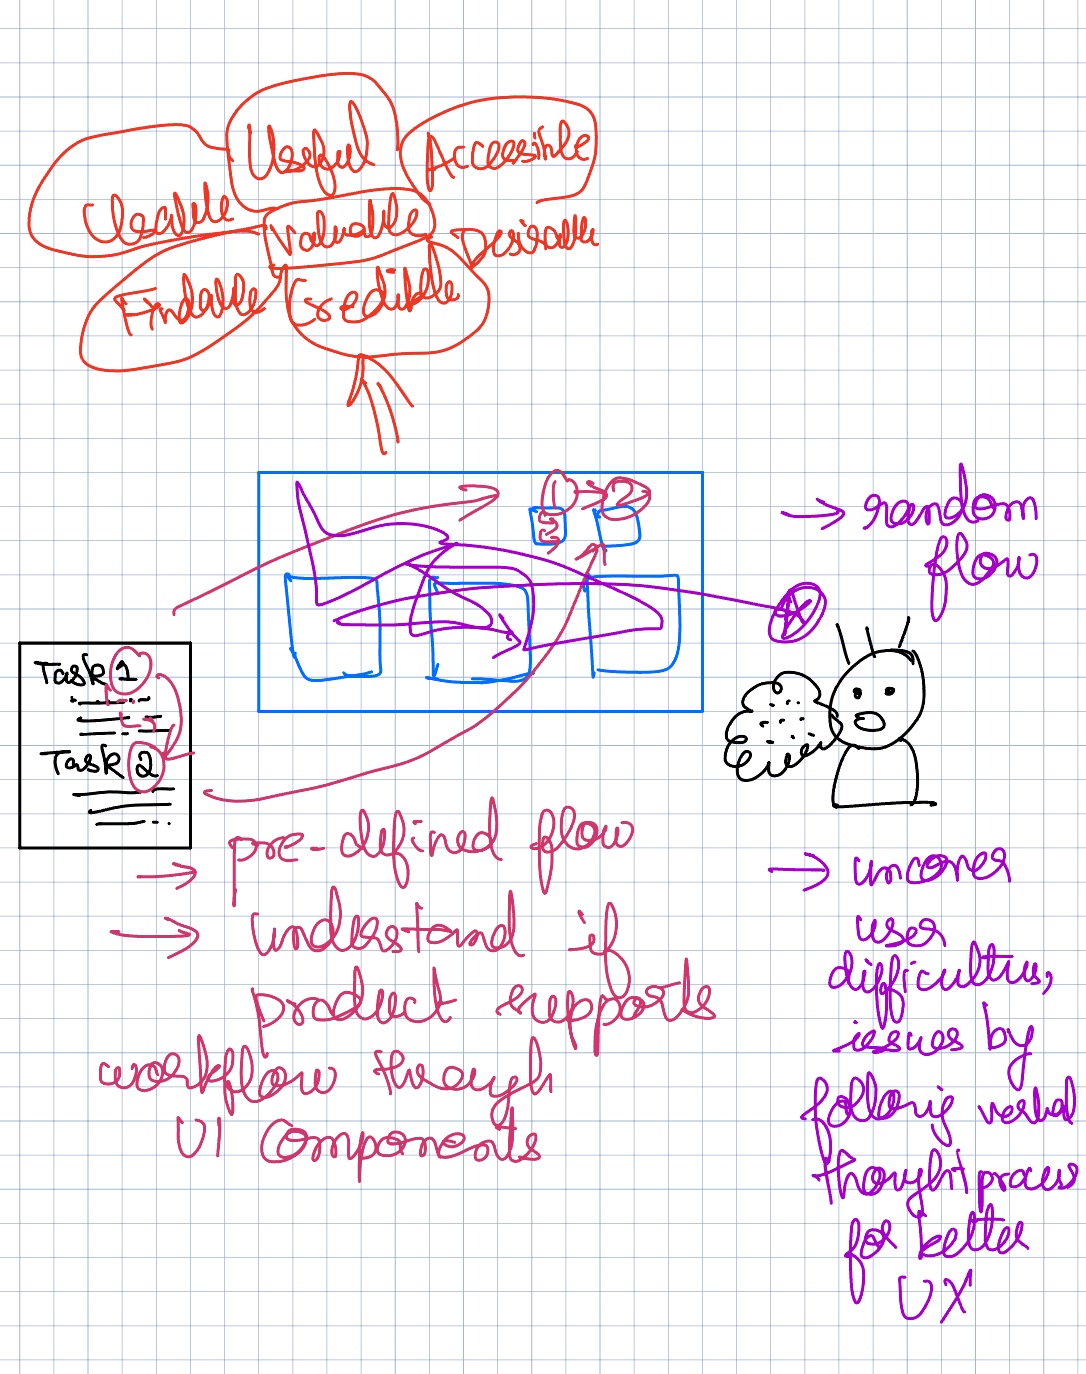 Useful
Accessible
Useable
Valuable
Desirable
Findable
Credible
1 → 2
3
→ random
flow
Task 1
Task 2
→ pre-defined flow
→ understand if
product supports
workflow through
UI Components
→ uncover
user
difficulties,
issues by
following verbal
thought process
for better
UX